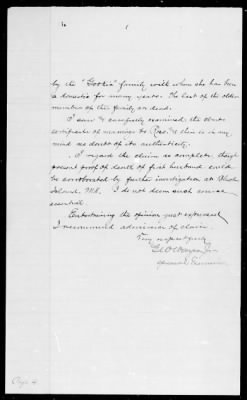 by the "Goozie" family with whom she has been
a domestic for many years. The last of the older
members of the family are dead.
I saw & carefully examined the church
certificate of marriage to Rae, & there is in my
mind no doubt of its authenticity.
I regard the claim as complete, though
present proof of death of first husband could
be corroborated by further investigation at Rhode
Island, I do not deem such course
essential.
Entertaining the opinion just expressed
I recommend admission of claim.
Very respectfully
Special Examiner
Page 4